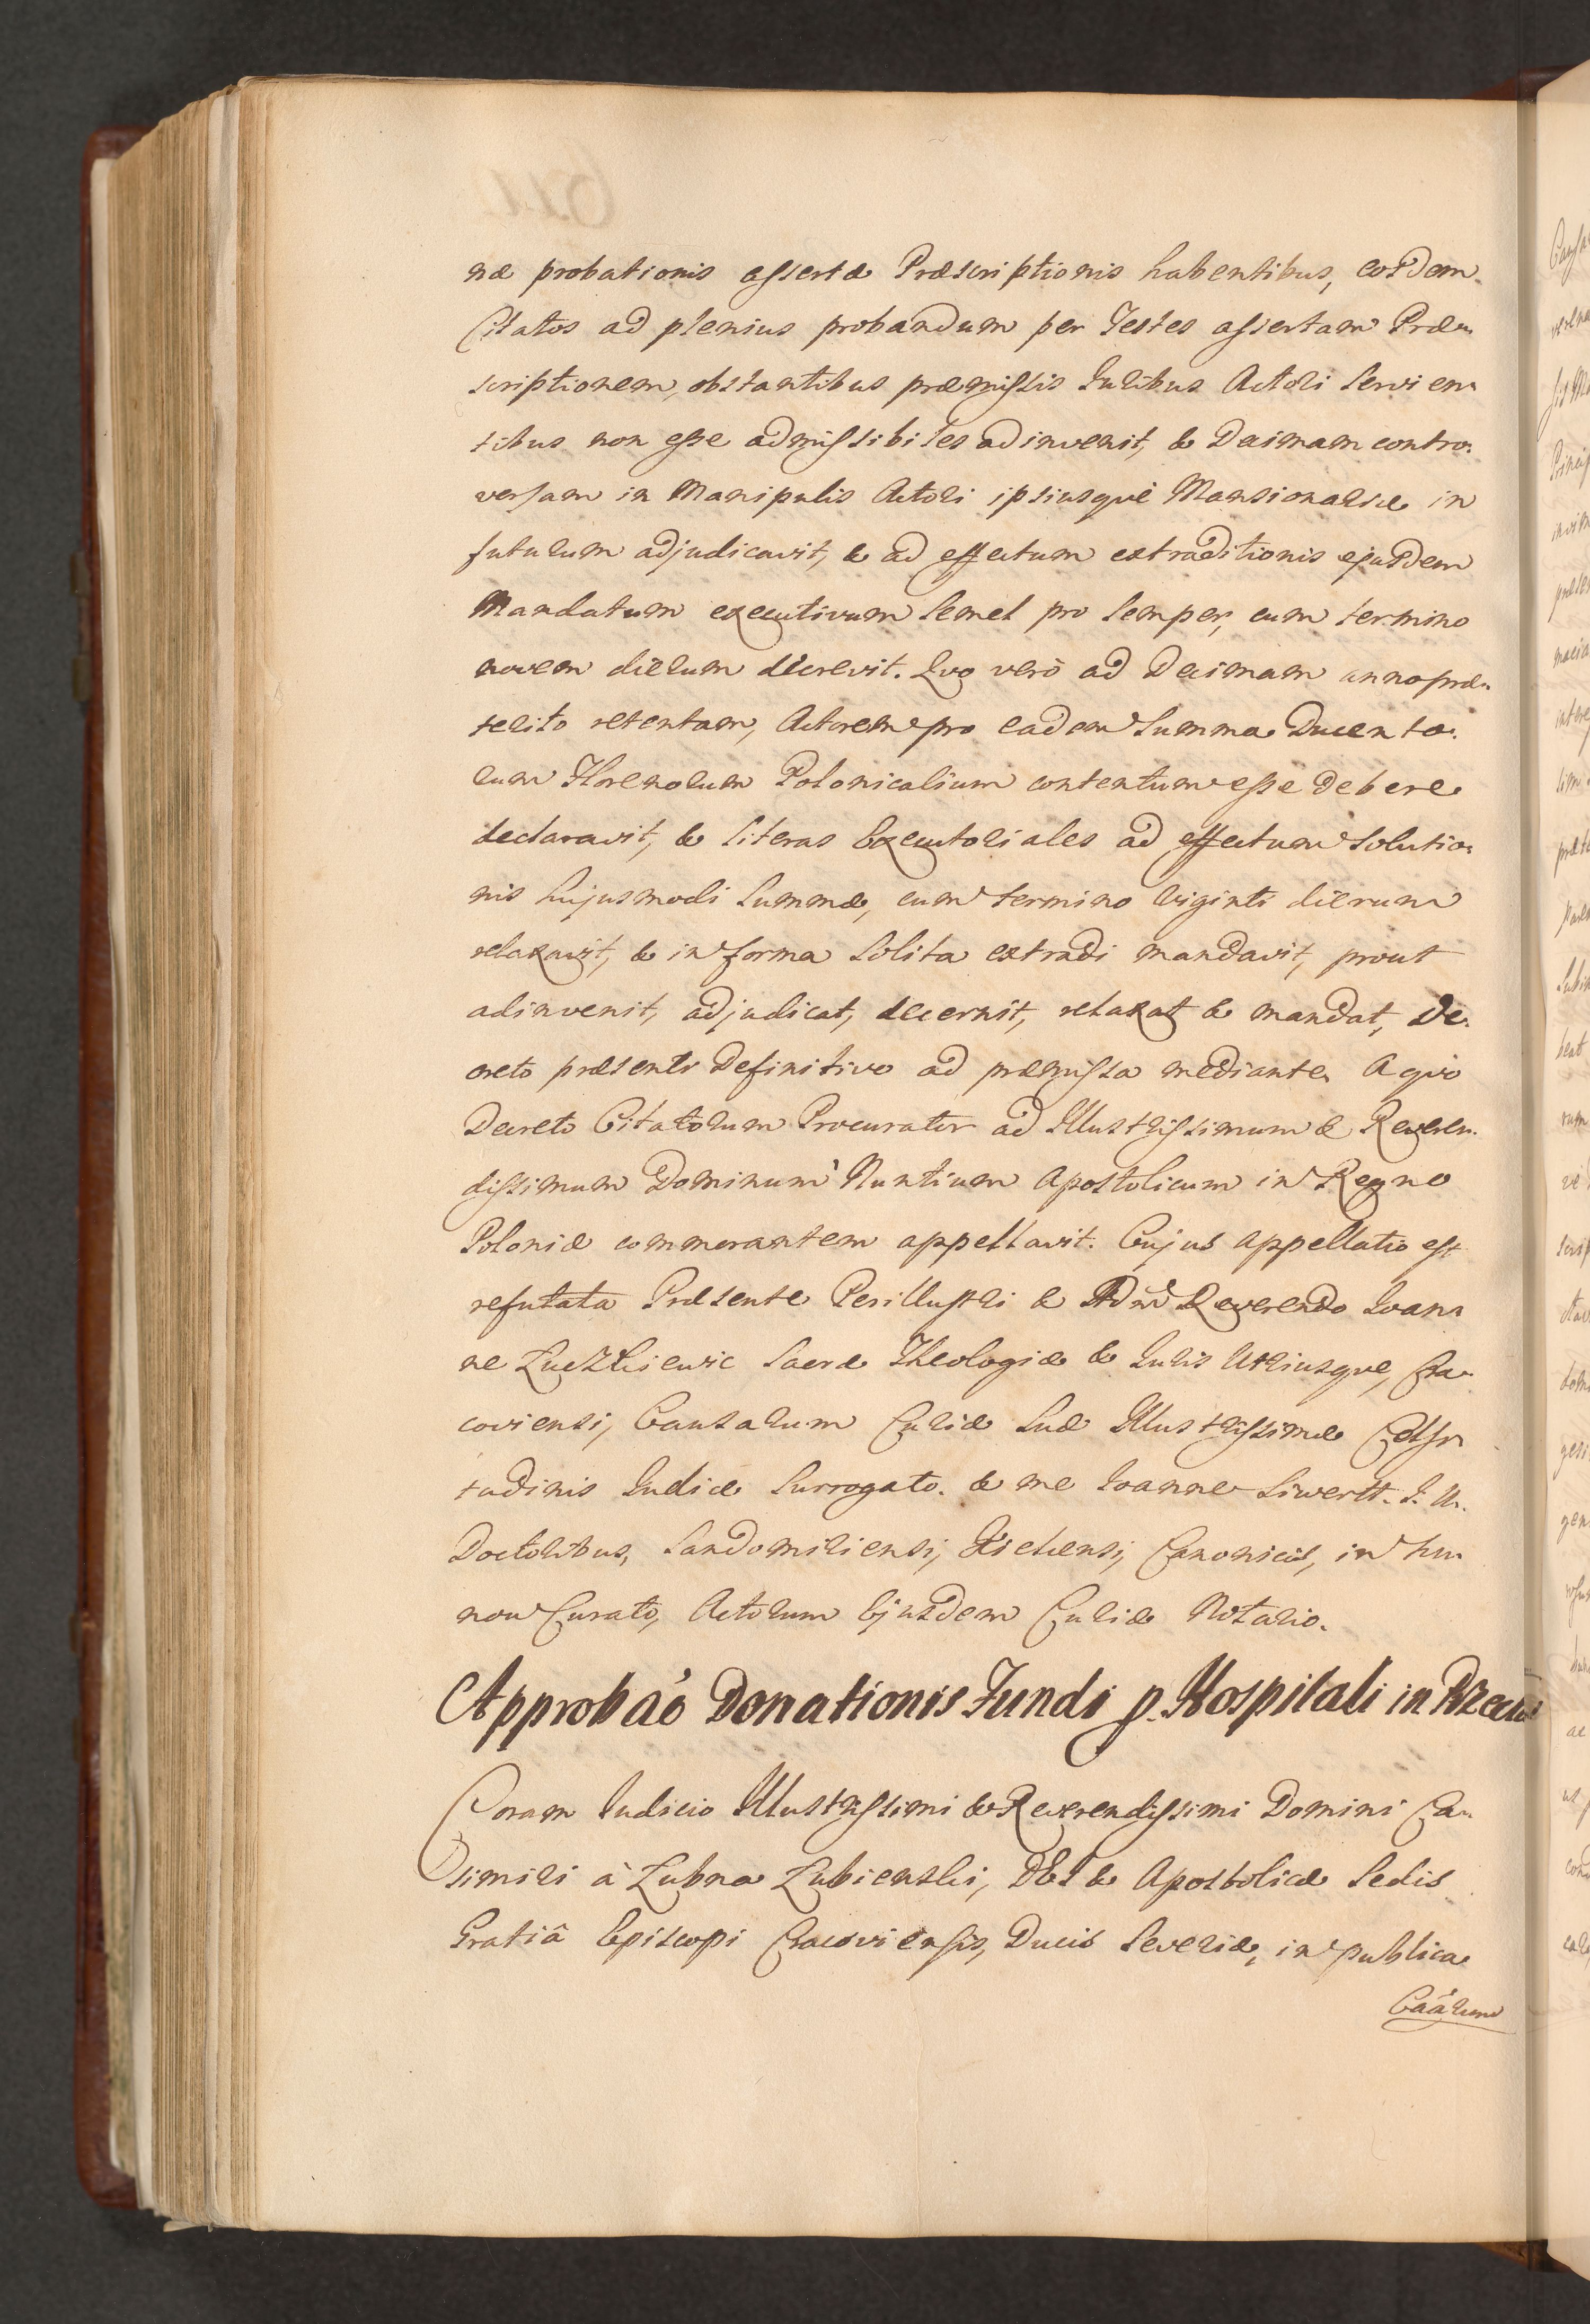 næ probationis assertæ Præscriptionis habentibus, eosdem
Citatos ad plenius probandum per Testes assertam Præ-
scriptionem, obstantibus præmissis Iuribus Actori servien-
tibus non esse admissibiles adinvenit, & Decimam contro-
versam in Manipulis Actori ipsiusque Mansionariæ in
futurum adjudicavit, & ad effectum extraditionis ejusdem
Mandatum executivum semel pro semper, cum termino
novem dierum decrevit. Quo verò ad Decimam anno præ-
terito retentam, Actorem pro eadem Summa Ducento-
rum Florenorum Polonicalium contentum esse debere
declaravit, & literas Executoriales ad effectum solutio-
nis hujusmodi Summæ, cum termino viginti dierum
relaxavit, & in forma solita extradi mandavit, prout
adinvenit, adjudicat, decernit, relaxat & mandat, De-
creto præsenti Definitivo ad præmissa mediante. A quo
Decreto Citatorum Procurator ad Illustrissimum & Reveren-
dissimum Dominum Nuntium Apostolicum in Regno
Poloniæ commorantem appellavit. Cujus appellatio est
refutata Præsente Perillustri & Adm̃ Reverendo Ioan-
ne Łuczkiewic Sacræ Theologiæ & Iuris Utriusque, Cra-
coviensi, Causarum Curiæ Suæ Illustrissimæ Celsi-
tudinis Iudice Surrogato. & me Ioanne Siwertt. I. U.
Doctoribus, Sandomiriensi, Kielcensi, Canonicis, in
Curato, Actorum Ejusdem Curiæ Notario.
Approbaõ Donationis Fundi p. Hospitali in
Coram Iudicio Illustrissimi & Reverendissimi Domini Ca-
simiri à Łubna Łubienski, DEI & Apostolicæ Sedis
Gratiâ Episcopi Cracoviensis, Ducis Severiæ, in publica
Caãrum